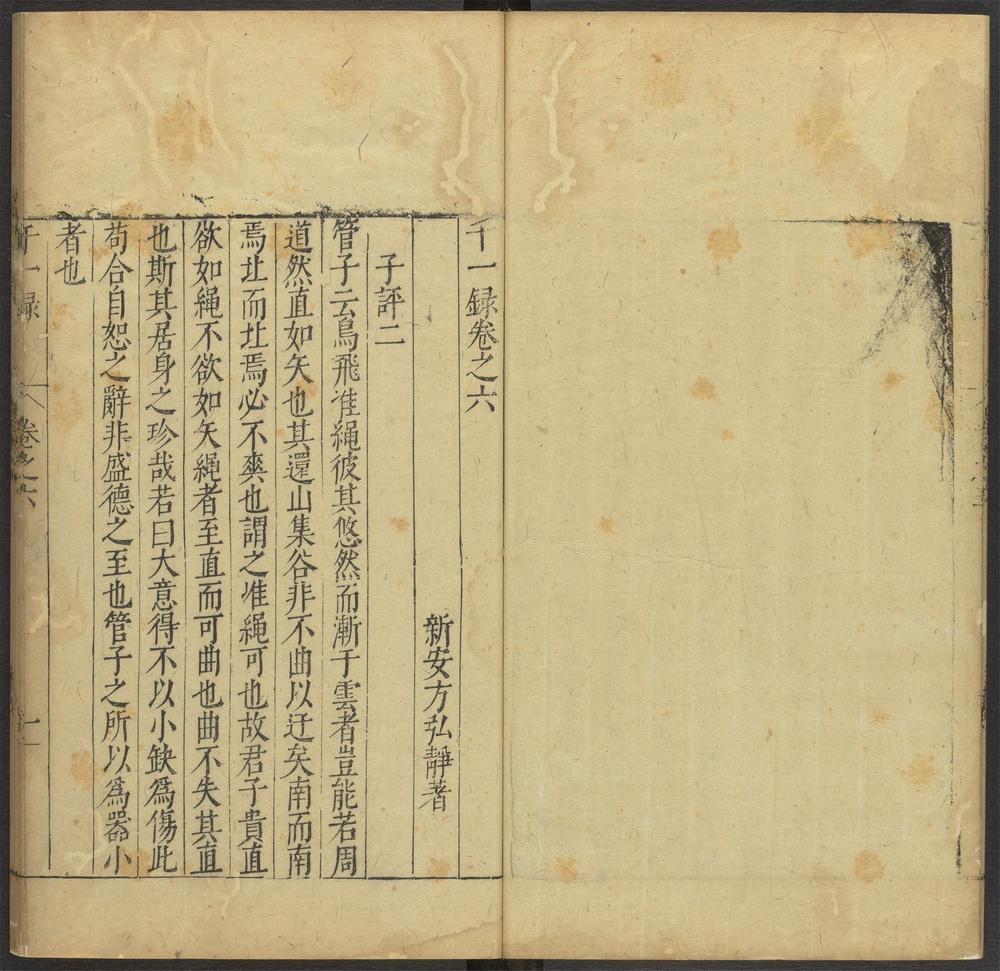 千一録卷之六
新安方弘靜著
子評二
管子云鳥飛准繩彼其悠然而漸于雲者豈能若周
道然直如矢也其還山集谷非不曲以迂矣南而南
焉北而北焉必不爽也謂之准繩可也故君子貴直
欲如繩不欲如矢繩者至直而可曲也曲不失其直
也斯其居身之珍哉若曰大意得不以小缺爲傷此
苟合自恕之辭非盛德之至也管子之所以爲器小
者也
千一録 卷之六 一